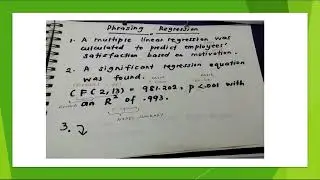 Phrasing Regression
1. A multiple linear regression was
calculated to predict employees'
satisfaction based on motivation.
2. A significant regression equation
was found.
(F(2,13) = 981.202, p <.001 with
an R² of .993.
3.